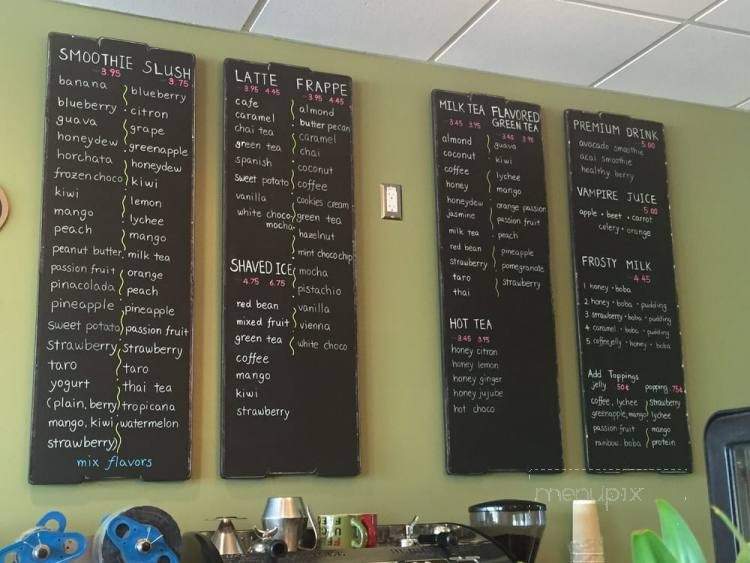 SMOOTHIE SLUSH
3.95 3.75
banana
blueberry
guava
honeydew
horchata
frozen choco
kiwi
mango
peach
peanut butter
passion fruit
pinacolada
pineapple
sweet potato
strawberry
taro
yogurt
(plain, berry
mango, kiwi
strawberry)
blueberry
citron
grape
greenapple
honeydew
kiwi
lemon
lychee
mango
milk tea
orange
peach
pineapple
passion fruit
strawberry
taro
thai tea
tropicana
watermelon
mix flavors
LATTE FRAPPE
3.95 4.45 3.95 4.45
cafe
caramel
chai tea
green tea
spanish
sweet potato
vanilla
white choco
mocha
almond
butter pecan
caramel
chai
coconut
coffee
cookies cream
green tea
hazelnut
mint choco chip
mocha
pistachio
vanilla
vienna
white choco
SHAVED ICE
4.75 6.75
red bean
mixed fruit
green tea
coffee
mango
kiwi
strawberry
MILK TEA FLAVORED
GREEN TEA
3.45 3.95 3.40 3.90
almond
coconut
coffee
honey
honeydew
jasmine
milk tea
red bean
strawberry
taro
thai
guava
kiwi
lychee
mango
orange passion
passion fruit
peach
pineapple
pomegranate
strawberry
HOT TEA
3.45 3.95
honey citron
honey lemon
honey ginger
honey jujube
hot choco
PREMIUM DRINK
5.00
avocado smoothie
acai smoothie
healthy berry
VAMPIRE JUICE
5.00
apple • beet • carrot
celery • orange
FROSTY MILK
4.45
1 honey • boba
2 honey • boba • pudding
3 strawberry • boba • pudding
4 caramel • boba • pudding
5 coffee jelly • honey • boba
Add Toppings
jelly 50¢ popping 75¢
coffee, lychee
greenapple, mango
passion fruit
rainbow, boba
strawberry
lychee
mango
protein
menupix